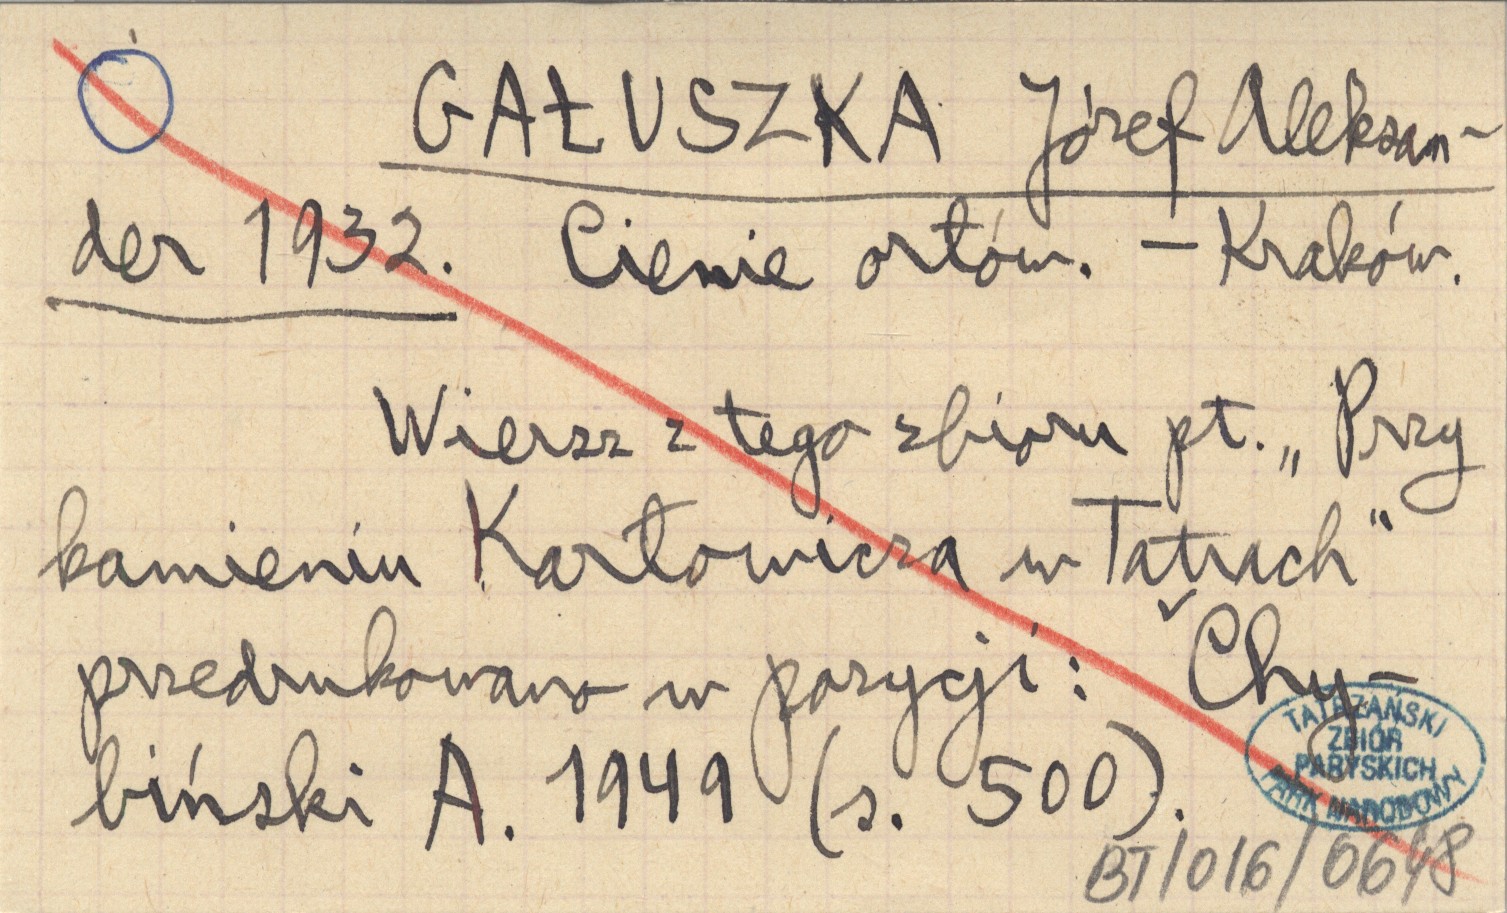 GAŁUSZKA Józef Aleksan-
der 1932. Cienie orłów. – Kraków.
Wiersz z tego zbioru pt. „Przy
kamieniu Karłowicza w Tatrach"
przedrukowano w pozycji: Chy-
biński A. 1949 (s. 500).
TATRZAŃSKI
ZBIÓR
PARYSKICH
PARK NARODOWY
BT/016/6648